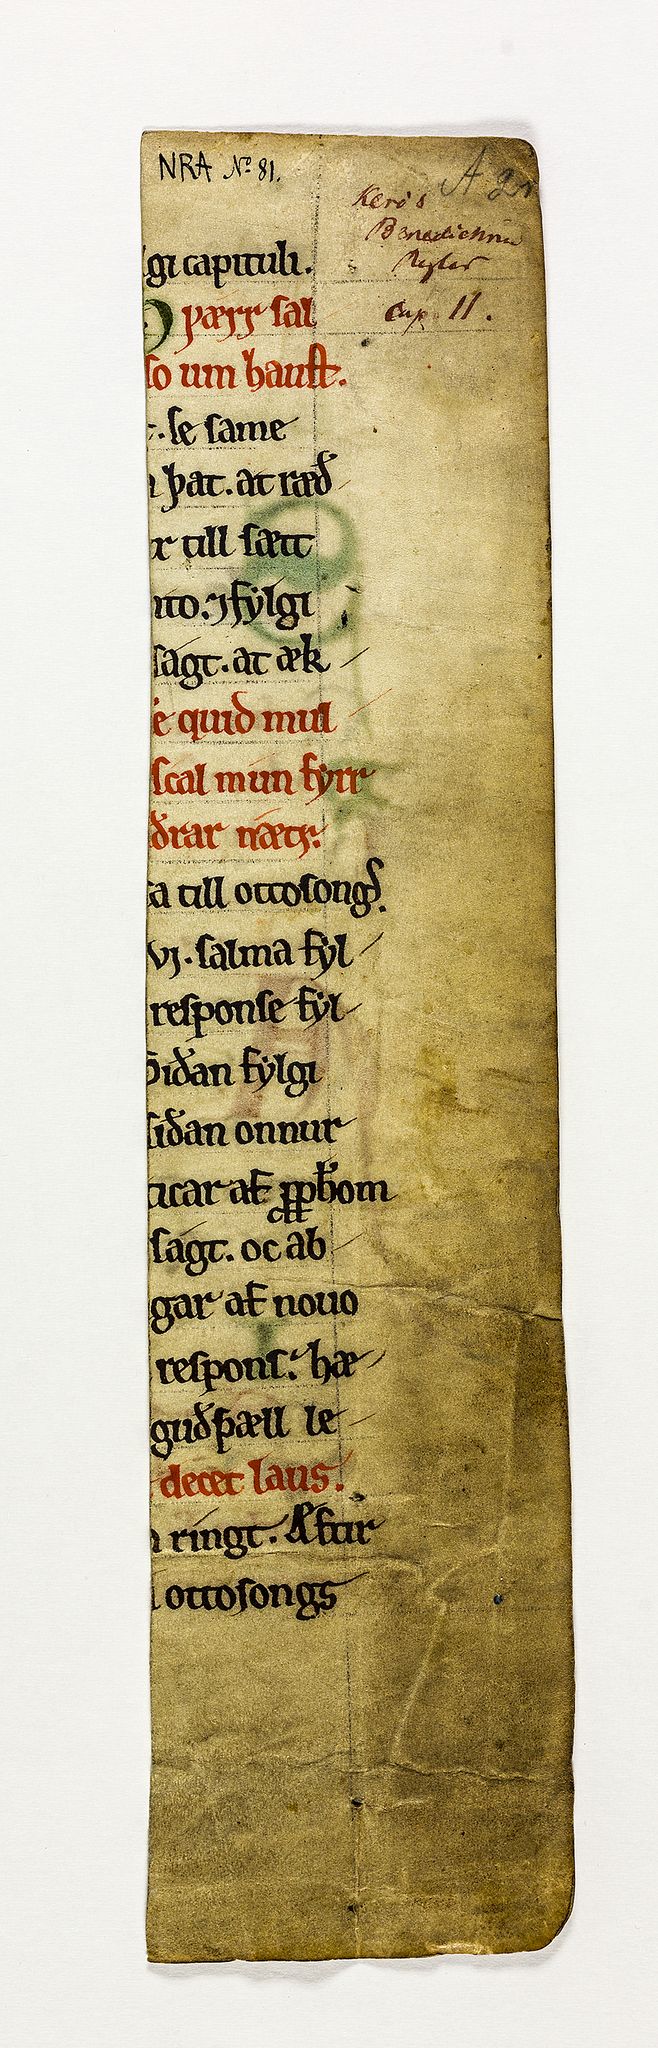 NRA No 81.
Benedictin
Cap 11.
gi capituli.
þærr sal
so um haust.
se same
þat. at ræð
till sætt
nto. ⁊ fylgi
sagt. at æk
e quid mul
scal mun fyrr
ðrar nætr.
sa till ottosongs.
vj. salma fyl
response fyl
siðan fylgi
siðan onnur
ticar af ꝓphom
sagt. oc ab
gar af nouo
respons. hæ
guðspæll le
decet laus.
ringt. Æftir
ottosongs